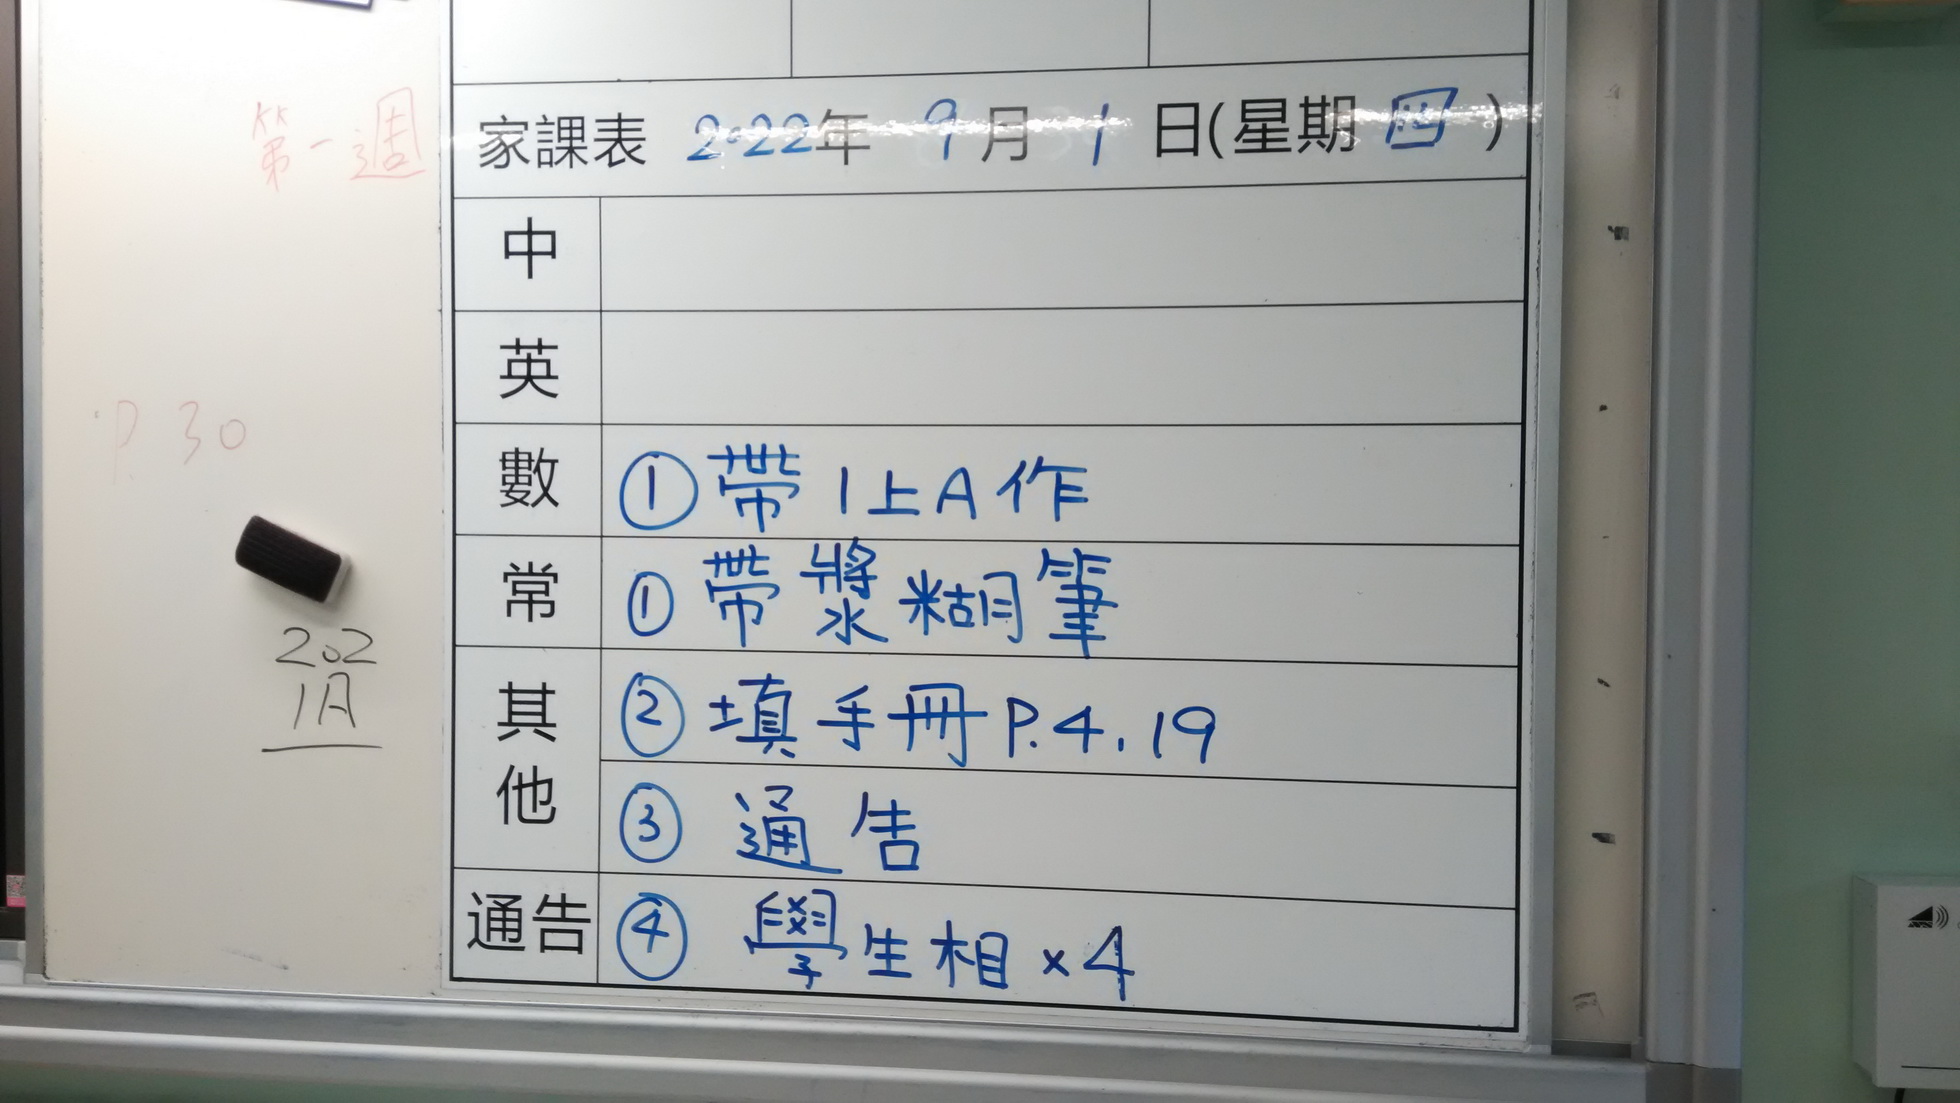 第一週
家課表 2022年 9月 1日(星期四)
中
英
P.30
數 ①帶1上A作
常 ①帶漿糊筆
202
1A
其他 ②填手冊P.4,19
③通告
通告 ④學生相×4